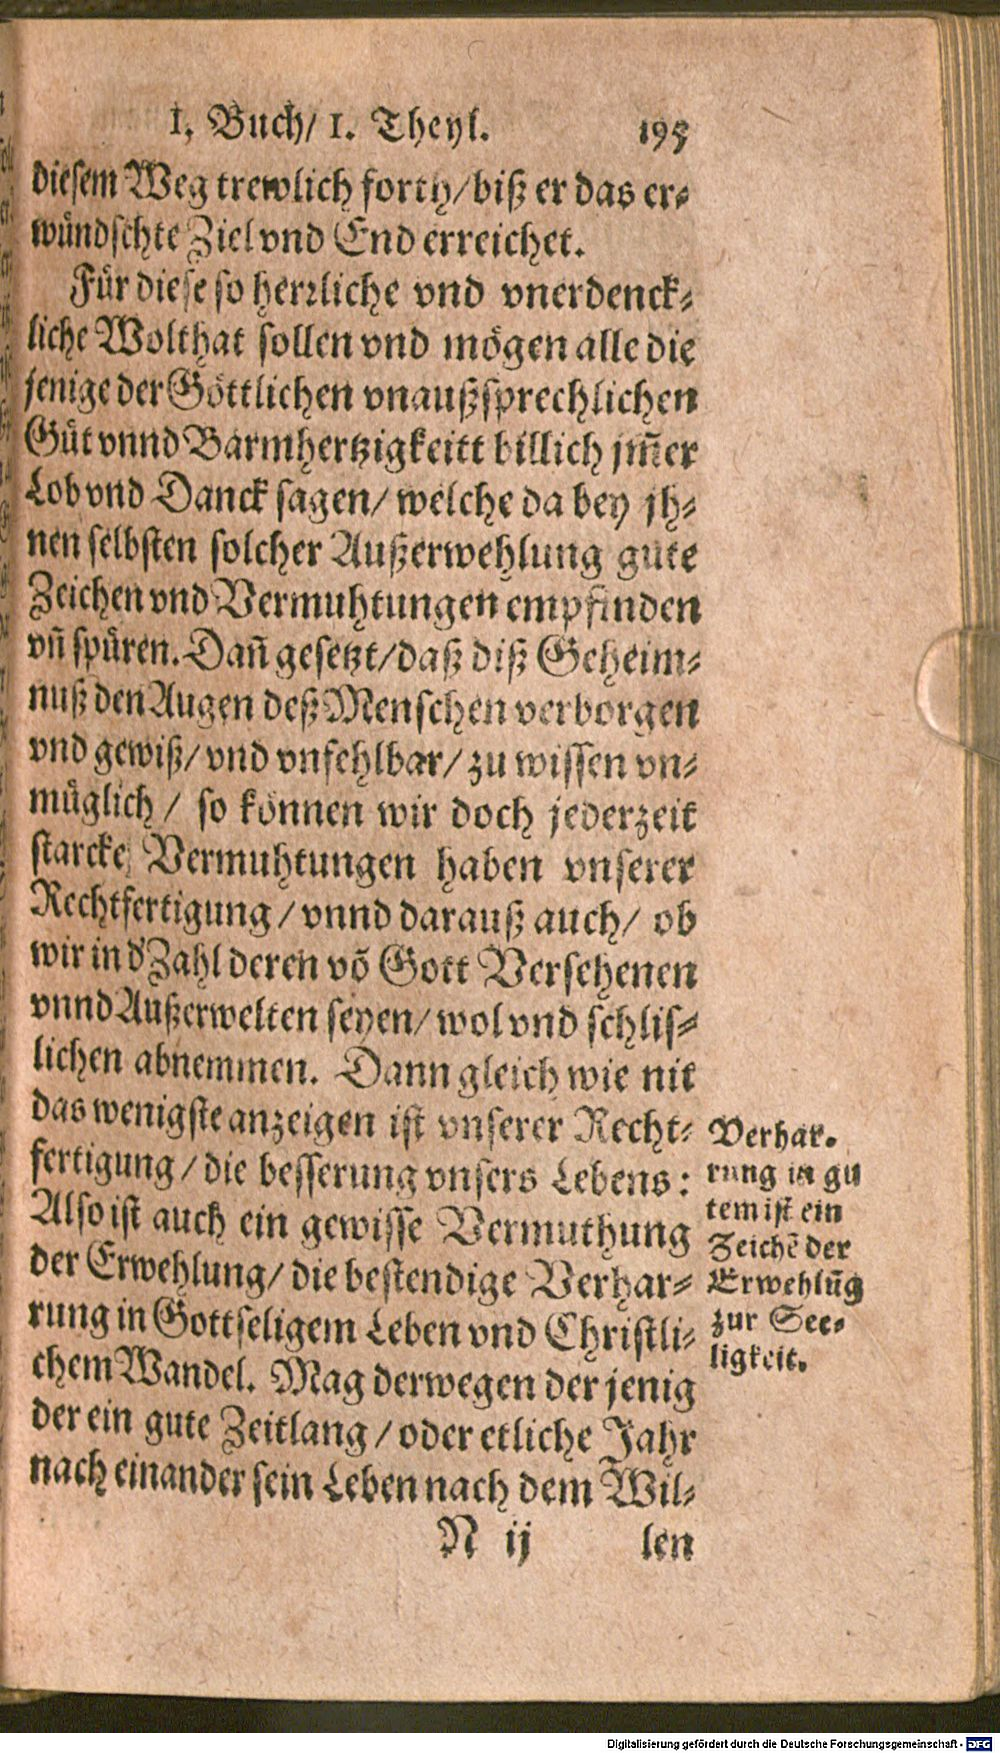 I. Buch/ I. Theyl. 195
diesem Weg trewlich forth/ biß er das er-
wündschte Ziel vnd End erreichet.
Für diese so herrliche vnd vnerdenck-
liche Wolthat sollen vnd mögen alle die
jenige der Göttlichen vnaußsprechlichen
Güt vnnd Barmhertzigkeitt billich jm̃er
Lob vnd Danck sagen/ welche da bey jh-
nen selbsten solcher Außerwehlung gute
Zeichen vnd Vermuhtungen empfinden
vñ spüren. Dañ gesetzt/ daß diß Geheim-
nuß den Augen deß Menschen verborgen
vnd gewiß/ vnd vnfehlbar/ zu wissen vn-
müglich/ so können wir doch jederzeit
starcke Vermuhtungen haben vnserer
Rechtfertigung/ vnnd darauß auch/ ob
wir in d' Zahl deren võ Gott Versehenen
vnnd Außerwelten seyen/ wol vnd schlis-
lichen abnemmen. Dann gleich wie nit
das wenigste anzeigen ist vnserer Recht-
fertigung/ die besserung vnsers Lebens:
Also ist auch ein gewisse Vermuthung
der Erwehlung/ die bestendige Verhar-
rung in Gottseligem Leben vnd Christli-
chem Wandel. Mag derwegen der jenig
der ein gute Zeitlang/ oder etliche Jahr
nach einander sein Leben nach dem Wil-
N ij len
Verhar-
rung in gu
tem ist ein
Zeichẽ der
Erwehlũg
zur See-
ligkeit.
Digitalisierung gefördert durch die Deutsche Forschungsgemeinschaft - DFG